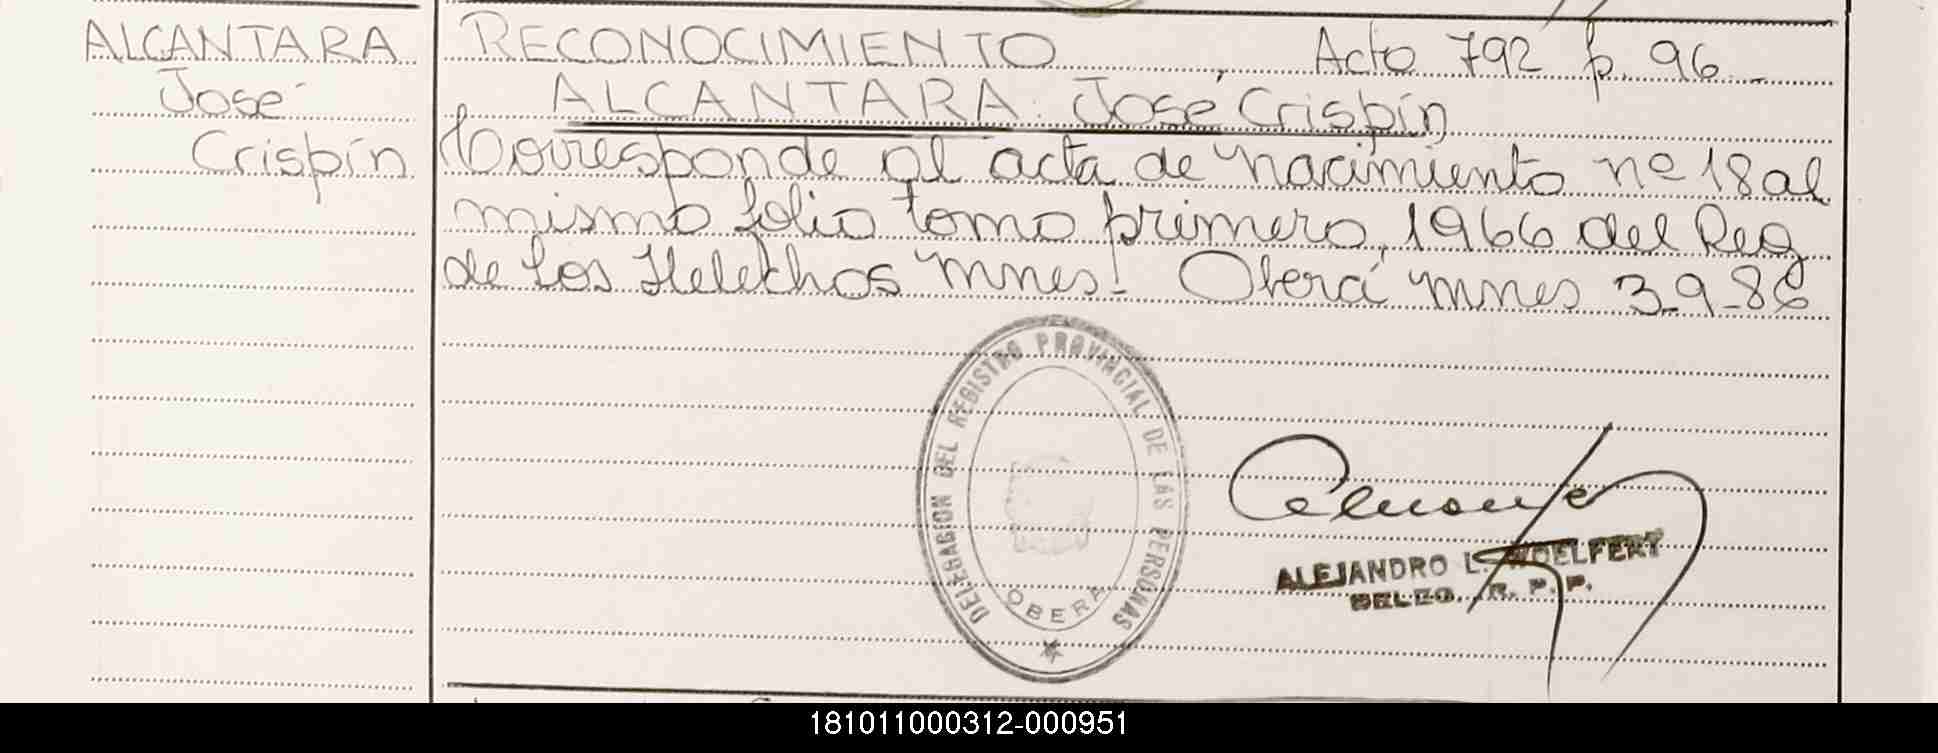 ALCANTARA
José
Crispín
RECONOCIMIENTO Acto 792 f. 96
ALCANTARA José Crispín
Corresponde al acta de nacimiento nº 18 al
mismo folio tomo primero, 1966 del Reg
de Los Helechos Mnes! Oberá Mnes 3-9-86
DELEGACION DEL REGISTRO PROVINCIAL DE LAS PERSONAS
OBERA
ALEJANDRO L. WOELFERT
DELEG. R. P. P.
181011000312-000951